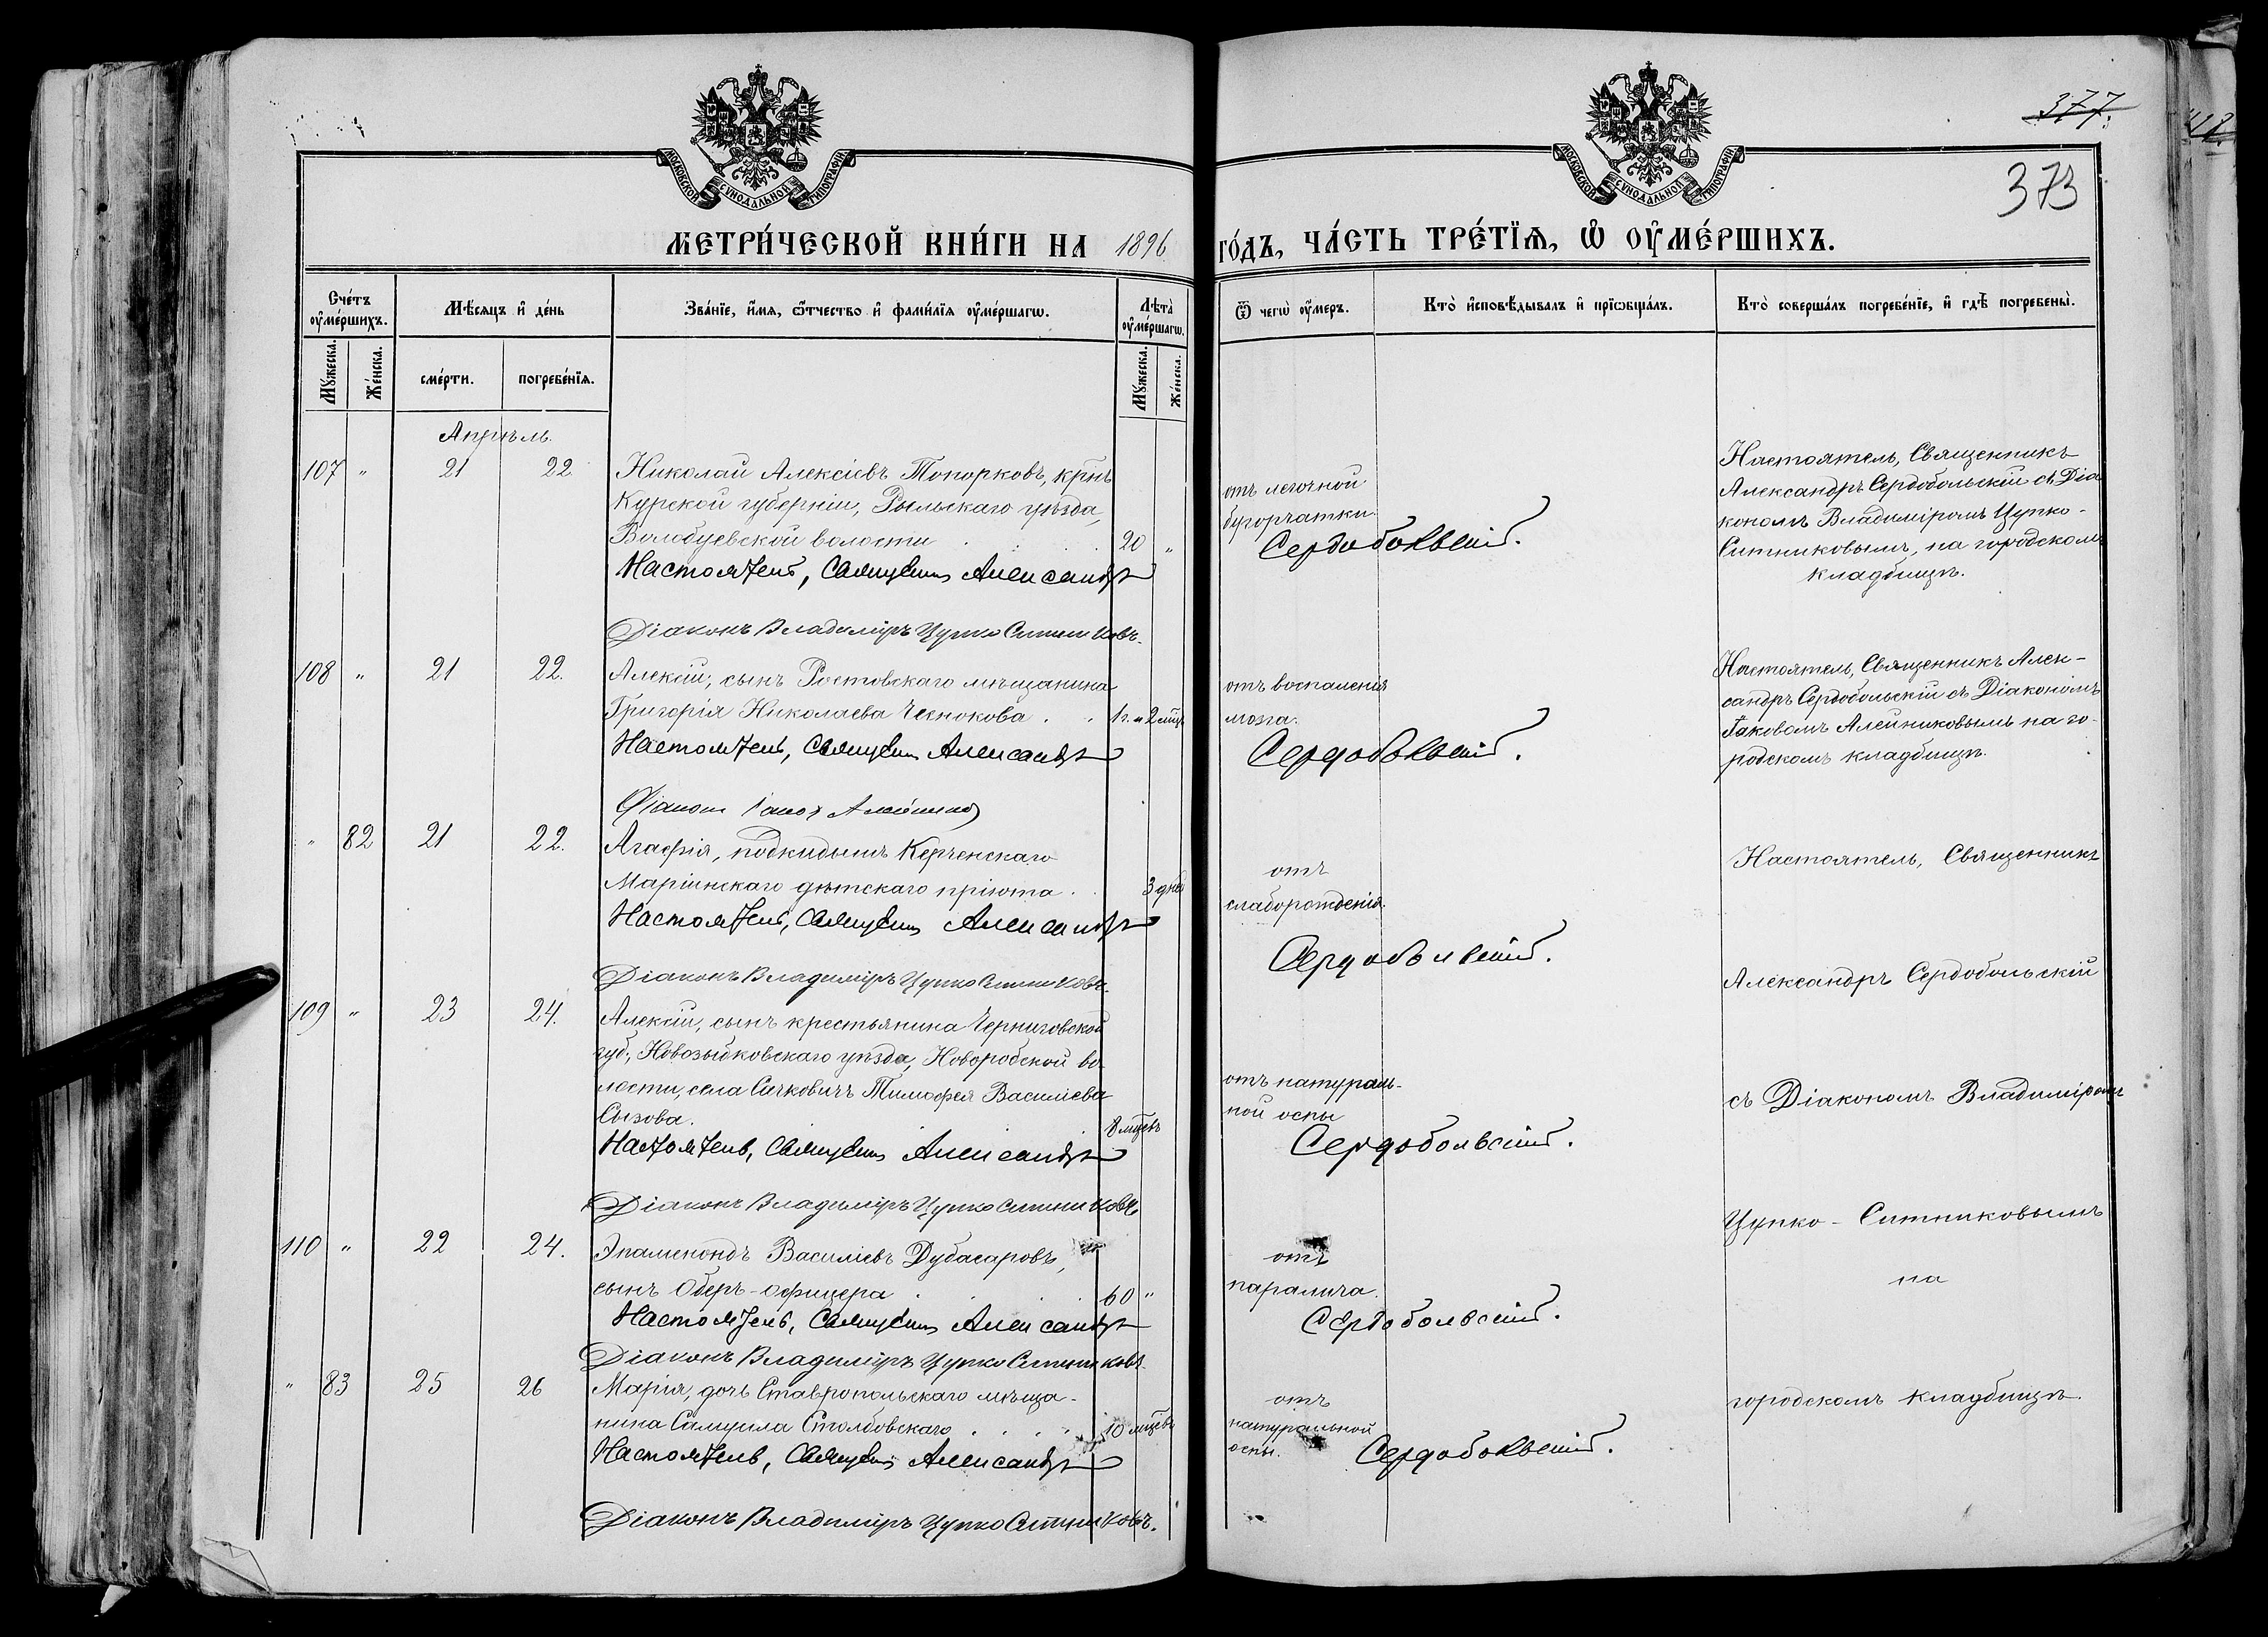 377.
373
МОСКОВСКОЙ СѴНОДАЛЬНОЙ ТИПОГРАФІИ
МОСКОВСКОЙ СѴНОДАЛЬНОЙ ТИПОГРАФІИ
МЕТРИ́ЧЕСКОЙ КНИ́ГИ НА 1896 ГО́ДЪ, ЧА́СТЬ ТРЕ́ТЇѦ, Ѡ҆ ОУ҆МЕ́РШИХЪ.
Сче́тъ оу҆ме́ршихъ.
Мѣ́сяцъ и҆ де́нь
Зва́нїе, и҆́мя, ѻ҆́тчество и҆ фами́лїя оу҆ме́ршагѡ.
Лѣ̀та оу҆ме́ршагѡ.
Ѿ чегѡ̀ оу҆́меръ.
Кто̀ и҆сповѣ́дывалъ и҆ прїѡбща́лъ.
Кто̀ соверша́лъ погребе́нїе, и҆ гдѣ̀ погребены̀.
Мꙋ́жеска.
Же́нска.
сме́рти.
погребе́нїя.
Мꙋ́жеска.
Же́нска.
Апрѣль.
107 " 21 22 Николай Алексіевъ Топорковъ, крнъ
Курской губерніи, Рыльскаго уѣзда,
Волобуевской волости . . . 20 "
Настоятель, Священникъ Александръ
Діаконъ Владиміръ Цупко Ситниковъ.
отъ легочной
бугорчатки
Сердобольскій.
Настоятель, Священникъ
Александръ Сердобольскій съ Діа
кономъ Владиміромъ Цупко-
Ситниковымъ, на городскомъ
кладбищѣ.
108 " 21 22. Алексій, сынъ Ростовскаго мѣщанина
Григорія Николаева Чеснокова . . 1 г. и 2 мцъ
Настоятель, Священникъ Александръ
Діаконъ Іаковъ Алейниковъ
отъ воспаленія
мозга.
Сердобольскій.
Настоятель, Священникъ Алек-
сандръ Сердобольскій съ Діакономъ
Іаковомъ Алейниковымъ на го-
родскомъ кладбищѣ.
" 82 21 22. Агафія, подкидышъ Керченскаго
Маріинскаго дѣтскаго пріюта . . 3 дней
Настоятель, Священникъ Александръ
Діаконъ Владиміръ Цупко Ситниковъ.
отъ
слаборожденія.
Сердобольскій.
Настоятель, Священникъ
Александръ Сердобольскій
109 " 23 24. Алексій, сынъ крестьянина Черниговской
губ., Новозыбковскаго уѣзда, Новоробской во
лости, села Сачковичъ Тимофея Василіева
Сызова. 8 мцевъ
Настоятель, Священникъ Александръ
Діаконъ Владиміръ Цупко Ситниковъ
отъ натураль-
ной оспы
Сердобольскій.
съ Діакономъ Владиміромъ
Цупко-Ситниковымъ
110 " 22 24. Эпаменондъ Василіевъ Дубасаровъ,
сынъ Оберъ-офицера . . . 60 "
Настоятель, Священникъ Александръ
Діаконъ Владиміръ Цупко Ситниковъ.
отъ
паралича.
Сердобольскій.
на
" 83 25 26 Марія, дочь Ставропольскаго мѣща-
нина Самуила Столбовскаго . . . . 10 мцевъ
Настоятель, Священникъ Александръ
Діаконъ Владиміръ Цупко Ситниковъ.
отъ
натуральной
оспы.
Сердобольскій.
городскомъ кладбищѣ.